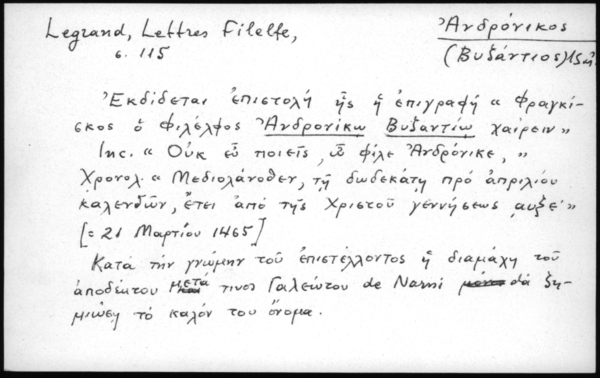 Legrand, Lettres Filelfe, Ἀνδρόνικος
σ. 115 (Βυζάντιος)
Ἐκδίδεται ἐπιστολή ἧς ἡ ἐπιγραφή « Φραγκί-
σκος ὁ Φιλέλφος Ἀνδρονίκῳ Βυζαντίῳ χαίρειν »
Inc. « Οὐκ εὖ ποιεῖς, ὦ φίλε Ἀνδρόνικε, »
Χρονολ. « Μεδιολάνοθεν, τῇ δωδεκάτῃ πρό ἀπριλίου
καλενδῶν, ἔτει ἀπό τῆς Χριστοῦ γεννήσεως αυξε' »
[= 21 Μαρτίου 1465]
Κατά τήν γνώμην τοῦ ἐπιστέλλοντος ἡ διαμάχη τοῦ
ἀποδέκτου μετά τινος Γαλεώτου de Narni θά ζη-
μιώσῃ τό καλόν του ὄνομα.